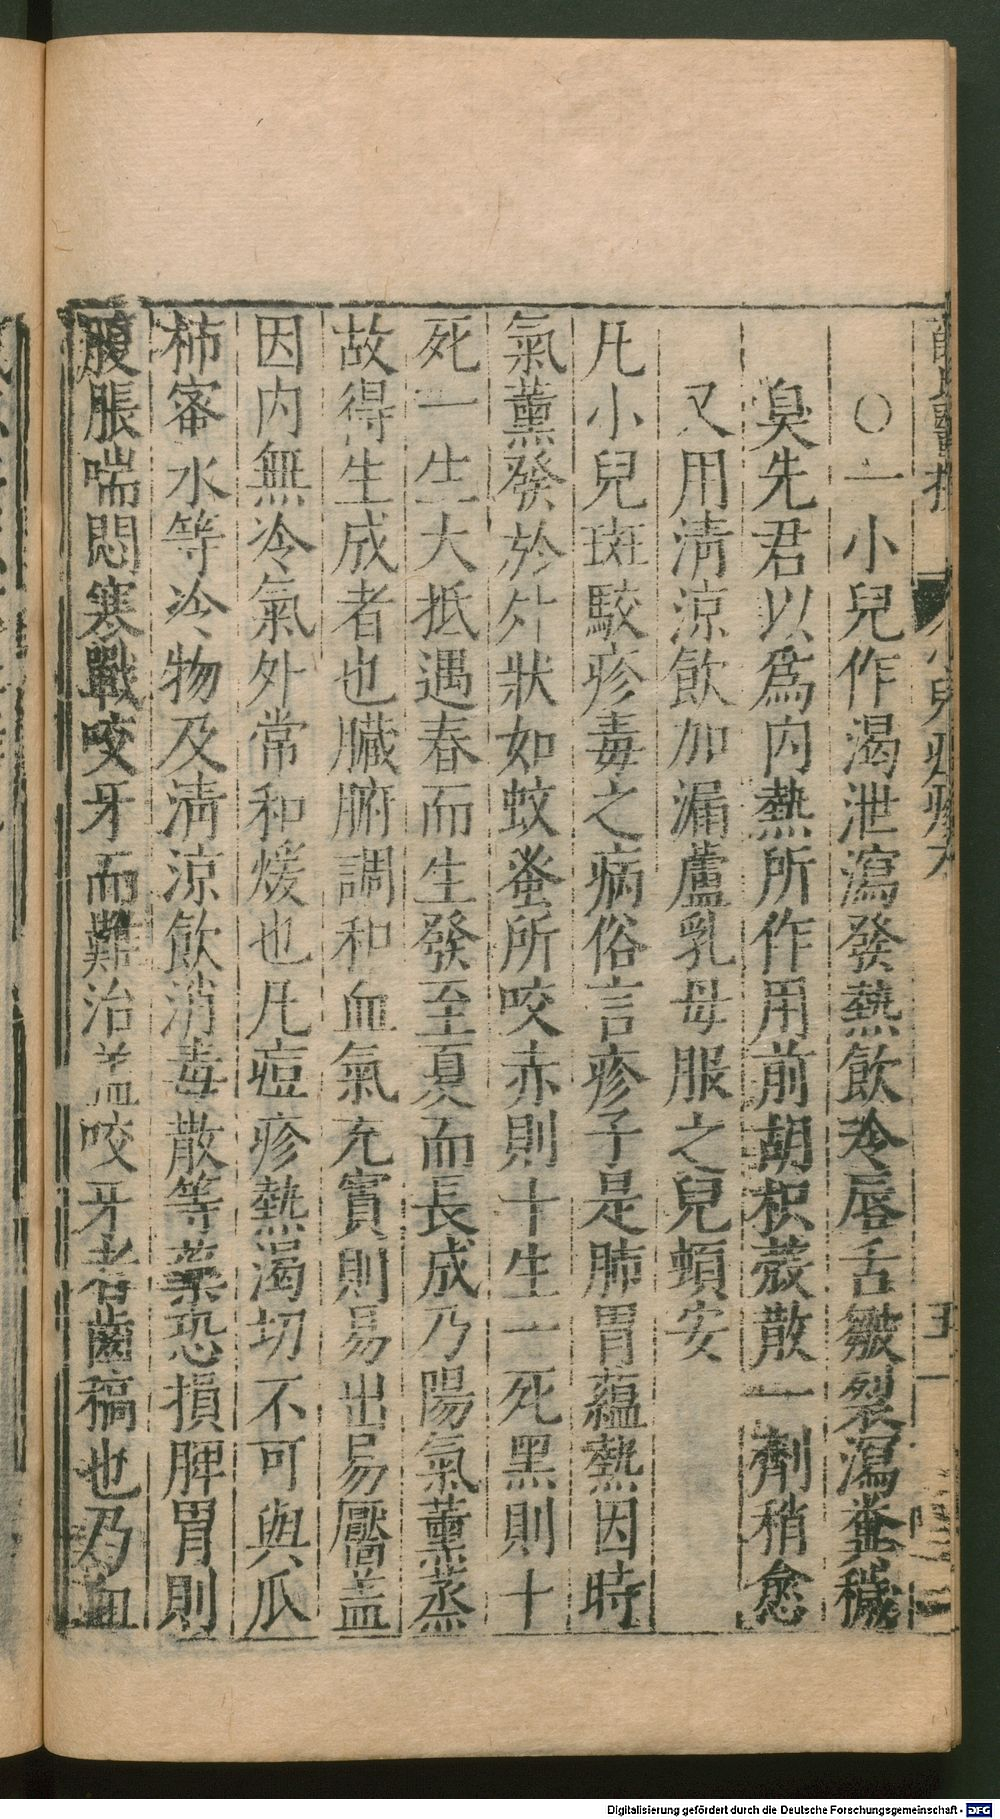 ○一小兒作渴泄瀉發熱飲冷唇舌皺裂瀉糞穢
臭先君以爲内熱所作用前胡枳殼散一劑稍愈
又用清涼飲加漏蘆乳母服之兒頓安
凡小兒斑駮疹毒之病俗言疹子是肺胃蘊熱因時
氣薰發於外狀如蚊蚤所咬赤則十生一死黑則十
死一生大抵遇春而生發至夏而長成乃陽氣薰蒸
故得生成者也臟腑調和血氣充實則易出易靨盖
因内無冷氣外常和煖也凡痘疹熱渴切不可與瓜
柿蜜水等冷物及清涼飲消毒散等藥恐損脾胃則
腹脹喘悶寒戰咬牙而難治盖咬牙者齒稿也乃血
Digitalisierung gefördert durch die Deutsche Forschungsgemeinschaft - DFG